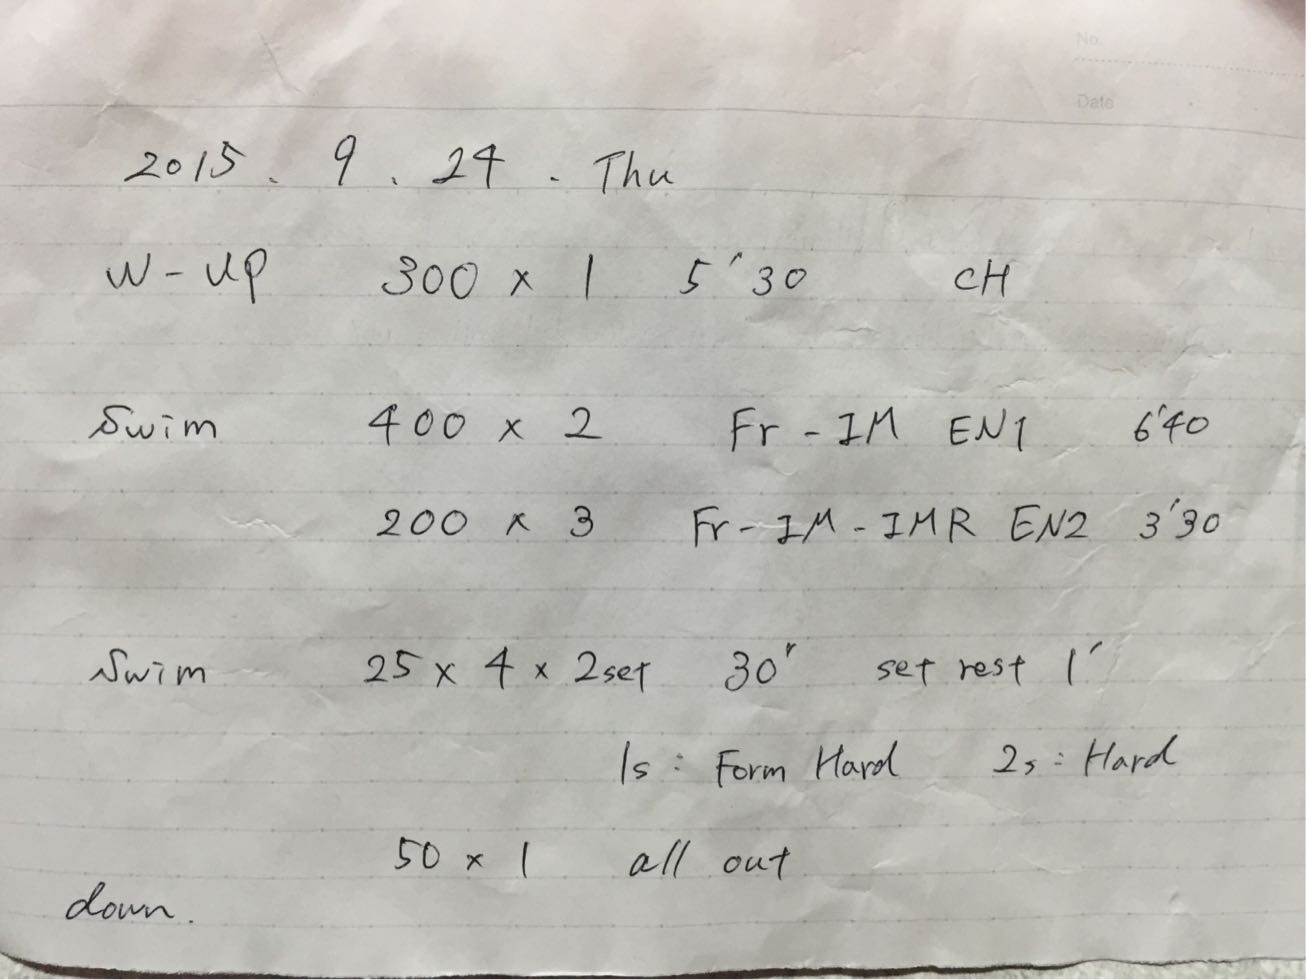 No.
Date
2015. 9. 24. Thu
W-up 300 × 1 5'30 CH
Swim 400 × 2 Fr-IM EN1 6'40
200 × 3 Fr-IM-IMR EN2 3'30
Swim 25 × 4 × 2set 30" set rest 1'
1s: Form Hard 2s: Hard
50 × 1 all out
down.